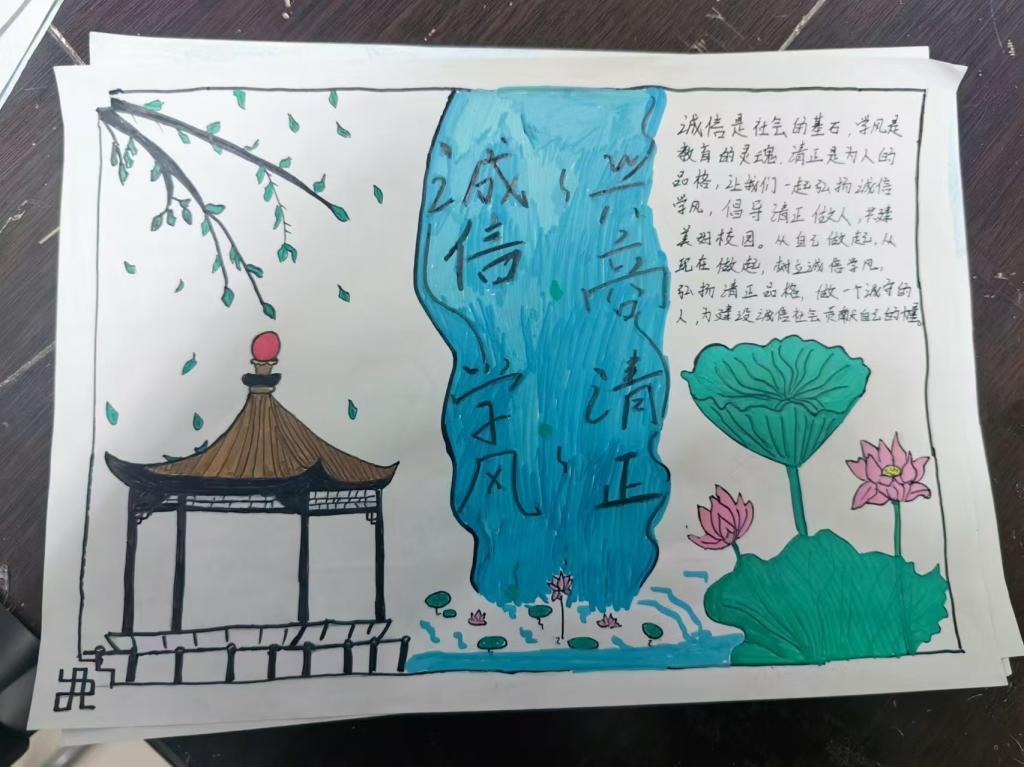 诚信学风
兴商清正
诚信是社会的基石，学风是
教育的灵魂，清正是为人的
品格，让我们一起弘扬诚信
学风，倡导清正做人，共建
美好校园。从自己做起，从
现在做起，树立诚信学风，
弘扬清正品格，做一个诚守的
人，为建设诚信社会贡献自己的